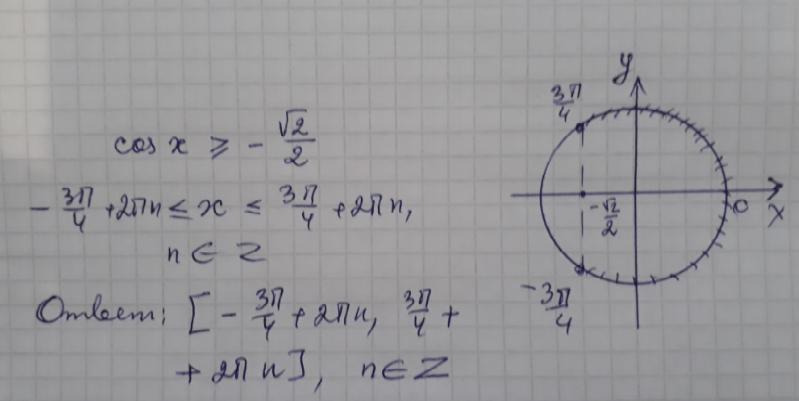 cos x ⩾ - √2/2
- 3π/4 + 2πn ≤ x ≤ 3π/4 + 2πn,
n ∈ Z
Ответ: [- 3π/4 + 2πn, 3π/4 +
+ 2πn], n ∈ Z
y
3π/4
-√2/2
0
x
-3π/4